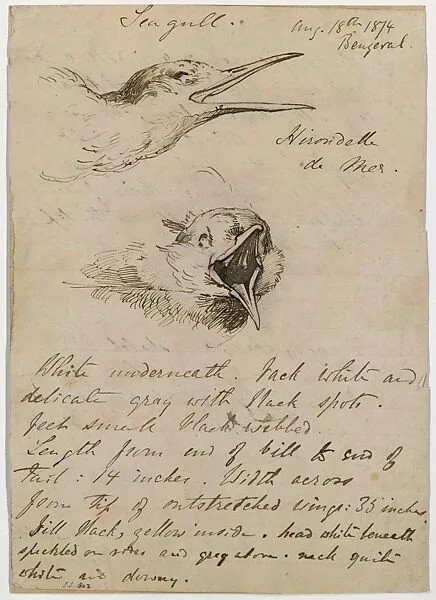 Seagull.
Aug. 18th 1874
Benzeval.
Hirondelle
de Mer.
White underneath. back white and
delicate gray with black spots.
feet small black webbed.
Length from end of bill to end of
tail: 14 inches. Width across
from tip of outstretched wings: 35 inches.
Bill black, yellow inside. head white beneath
speckled on sides and gray above. neck quite
white and downy.